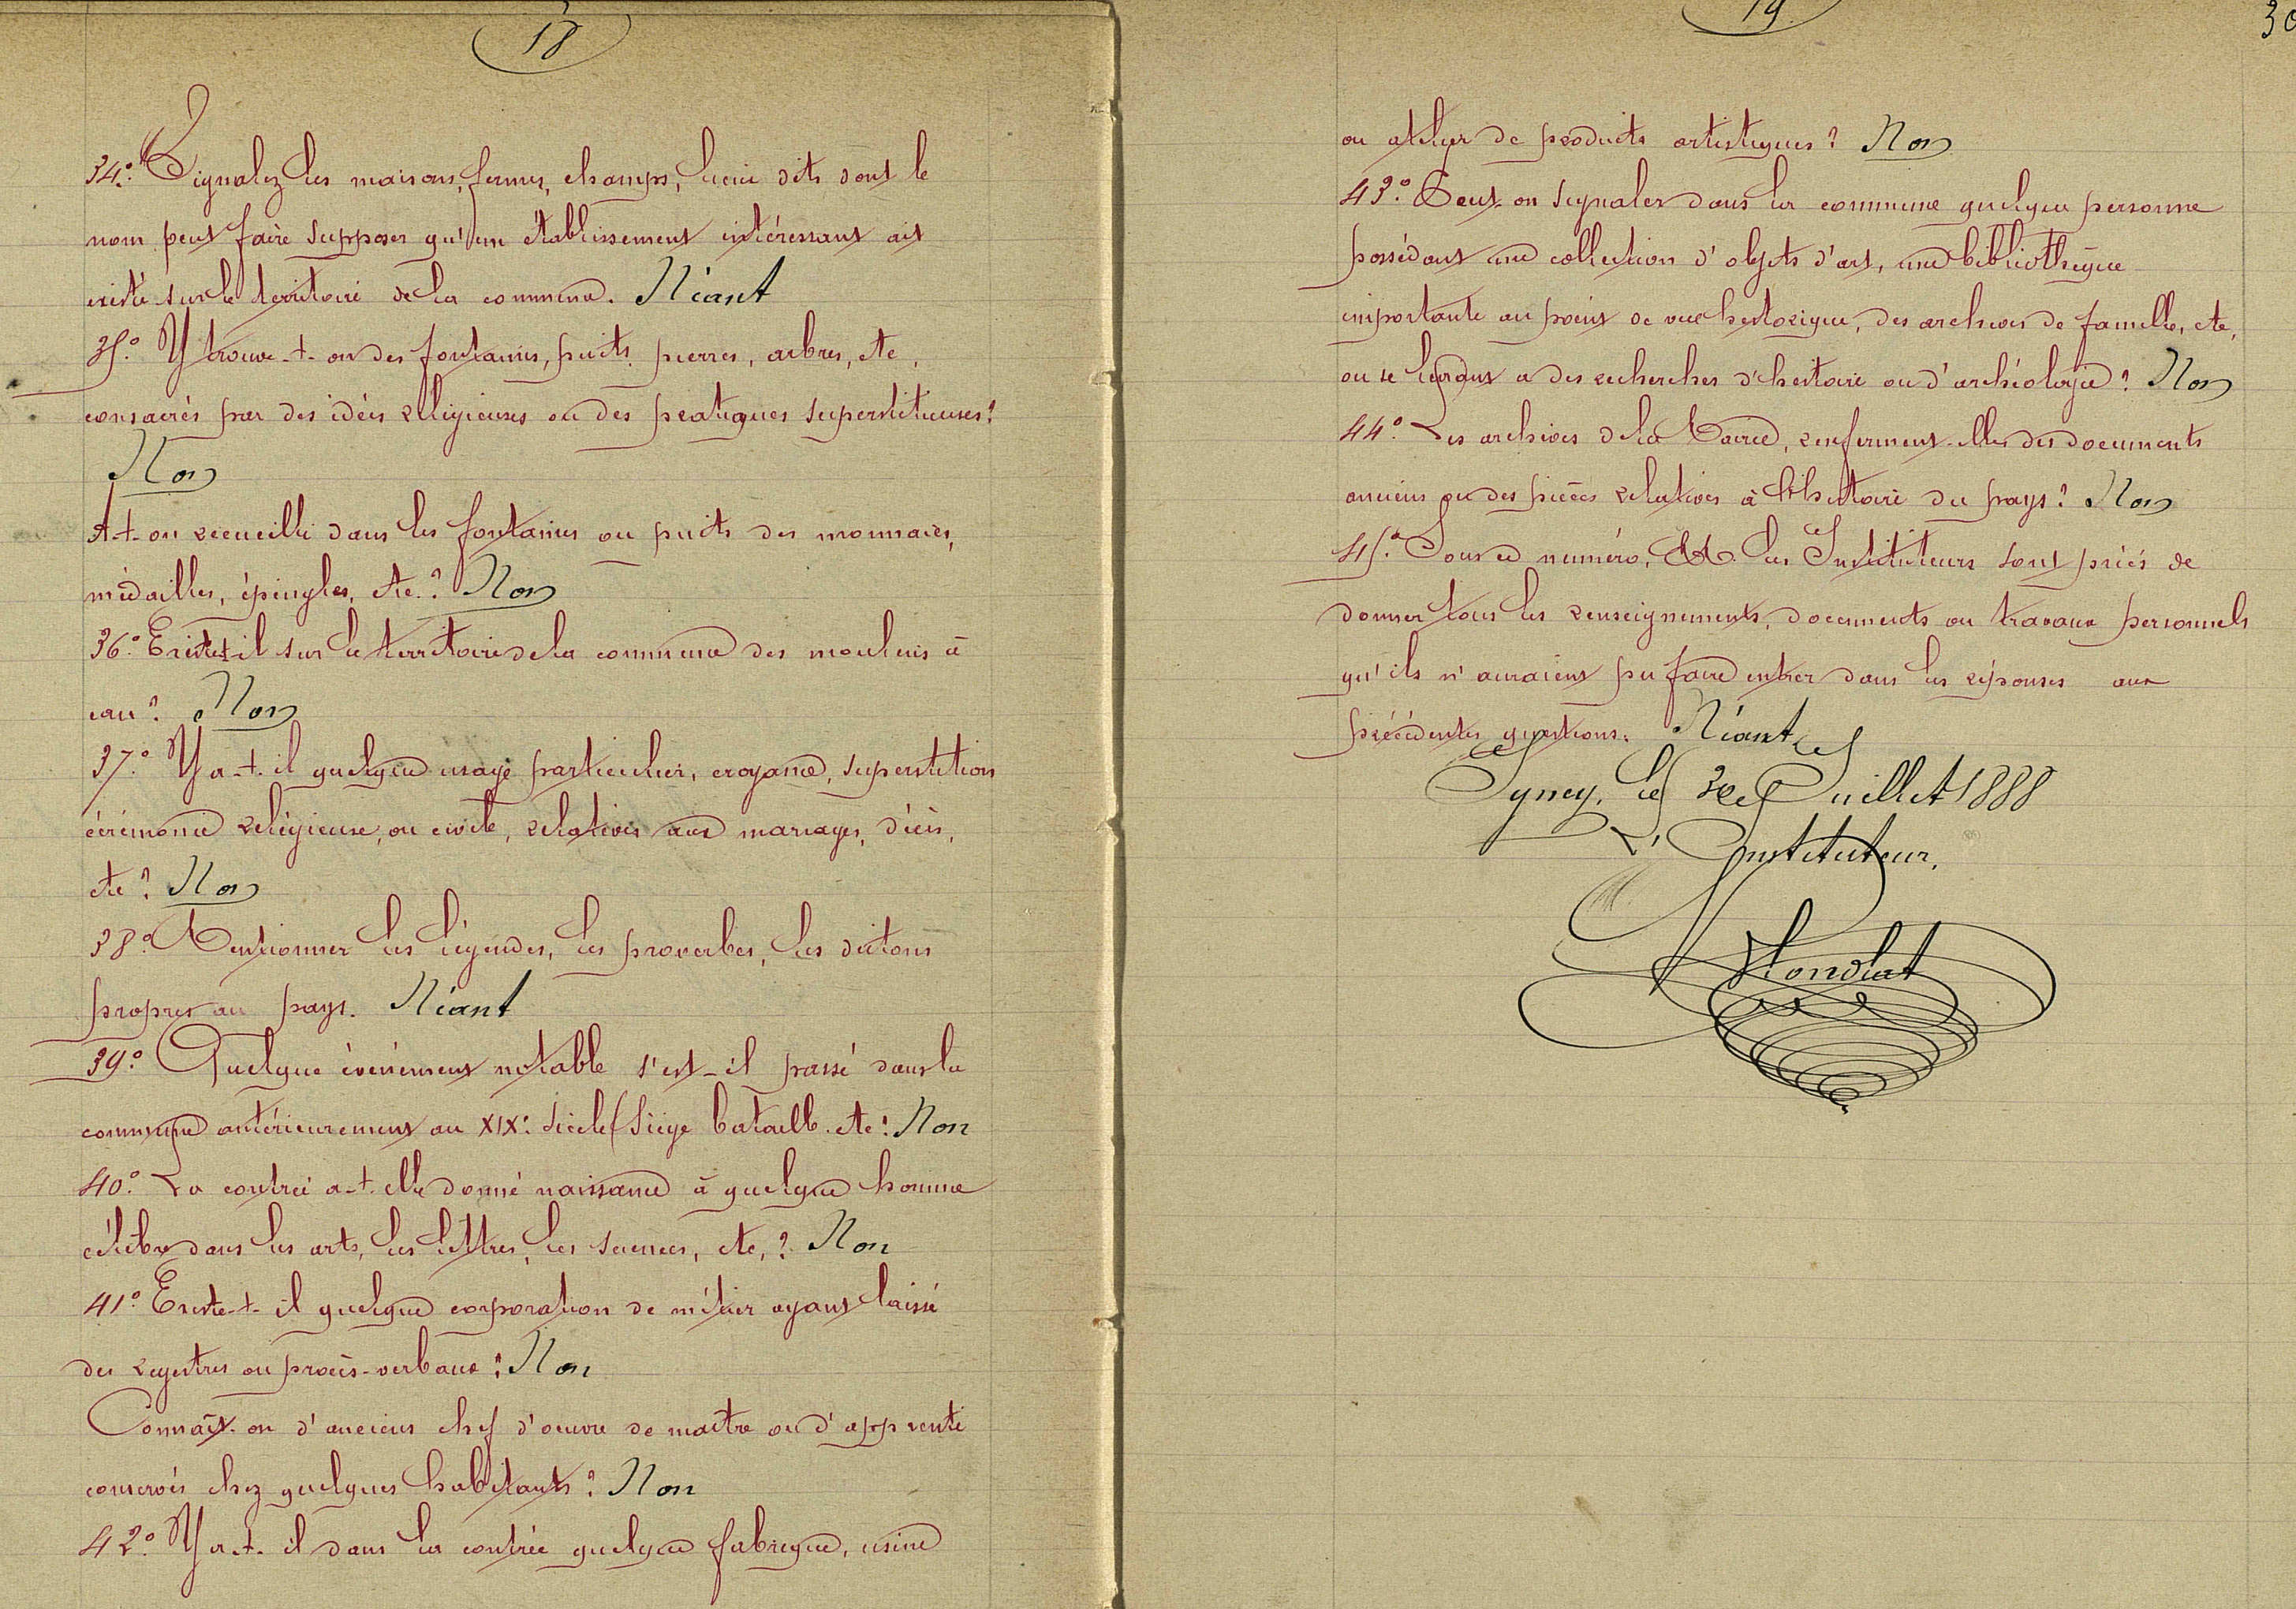 18
34° Signalez les maisons, fermes, champs, lieux dits dont le
nom peut faire supposer qu'un établissement intéressant ait
existé sur le territoire de la commune. Néant
35° Y trouve-t-on des fontaines, puits, pierres, arbres, etc,
consacrés par des idées religieuses ou des pratiques superstitieuses?
Non
A-t-on recueilli dans les fontaines ou puits des monnaies,
médailles, épingles, etc.? Non
36° Existe-t-il sur le territoire de la commune des moulins à
eau? Non
37° Y a-t-il quelque usage particulier, croyance, superstition
cérémonie religieuse, ou civile, relatives aux mariages, décès,
etc? Non
38° Mentionner les légendes, les proverbes, les dictons
propres au pays. Néant
39° Quelque évènement notable s'est-il passé dans la
commune antérieurement au XIX° siècle (siège bataille. etc? Non
40° La contrée a-t-elle donné naissance à quelque homme
célèbre dans les arts, les lettres, les sciences, etc,? Non
41° Existe-t-il quelque corporation de métier ayant laissé
des registres ou procès-verbaux? Non
Connaît-on d'anciens chef d'œuvre de maître ou d'apprenti
conservés chez quelques habitants? Non
42° Y a-t-il dans la contrée quelque fabrique, usine
19
30
ou atelier de produits artistiques? Non
43° Peut-on signaler dans la commune quelque personne
possédant une collection d'objets d'art, une bibliothèque
importante au point de vue historique, des archives de famille, etc,
ou se livrant a des recherches d'histoire ou d'archéologie? Non
44° Les archives de la Mairie, renferment-elles des documents
anciens ou des pièces relatives à l'histoire du pays? Non
45° Sous ce numéro, MM. les Instituteurs sont priés de
donner tous les renseignements, documents ou travaux personnels
qu'ils n'auraient pu faire entrer dans les réponses aux
précédentes questions. Néant
Igney, le 30 Juillet 1888
L'Instituteur,